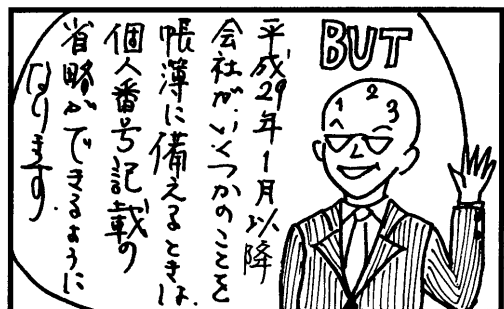 BUT
1 2 3
平成29年1月以降
会社が、いくつかのことを
帳簿に備えるときは、
個人番号記載の
省略ができるように
なります。